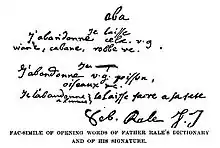 aba
Je laisse
J'abandonne cela. v.g
want, cabane, robbe &c.
J'abandonne v.g. poisson,
oiseaux &c.
Je l'abandonne le laisse faire a sa teste
Seb. Rale S.J
FAC-SIMILE OF OPENING WORDS OF FATHER RALE'S DICTIONARY
AND OF HIS SIGNATURE.